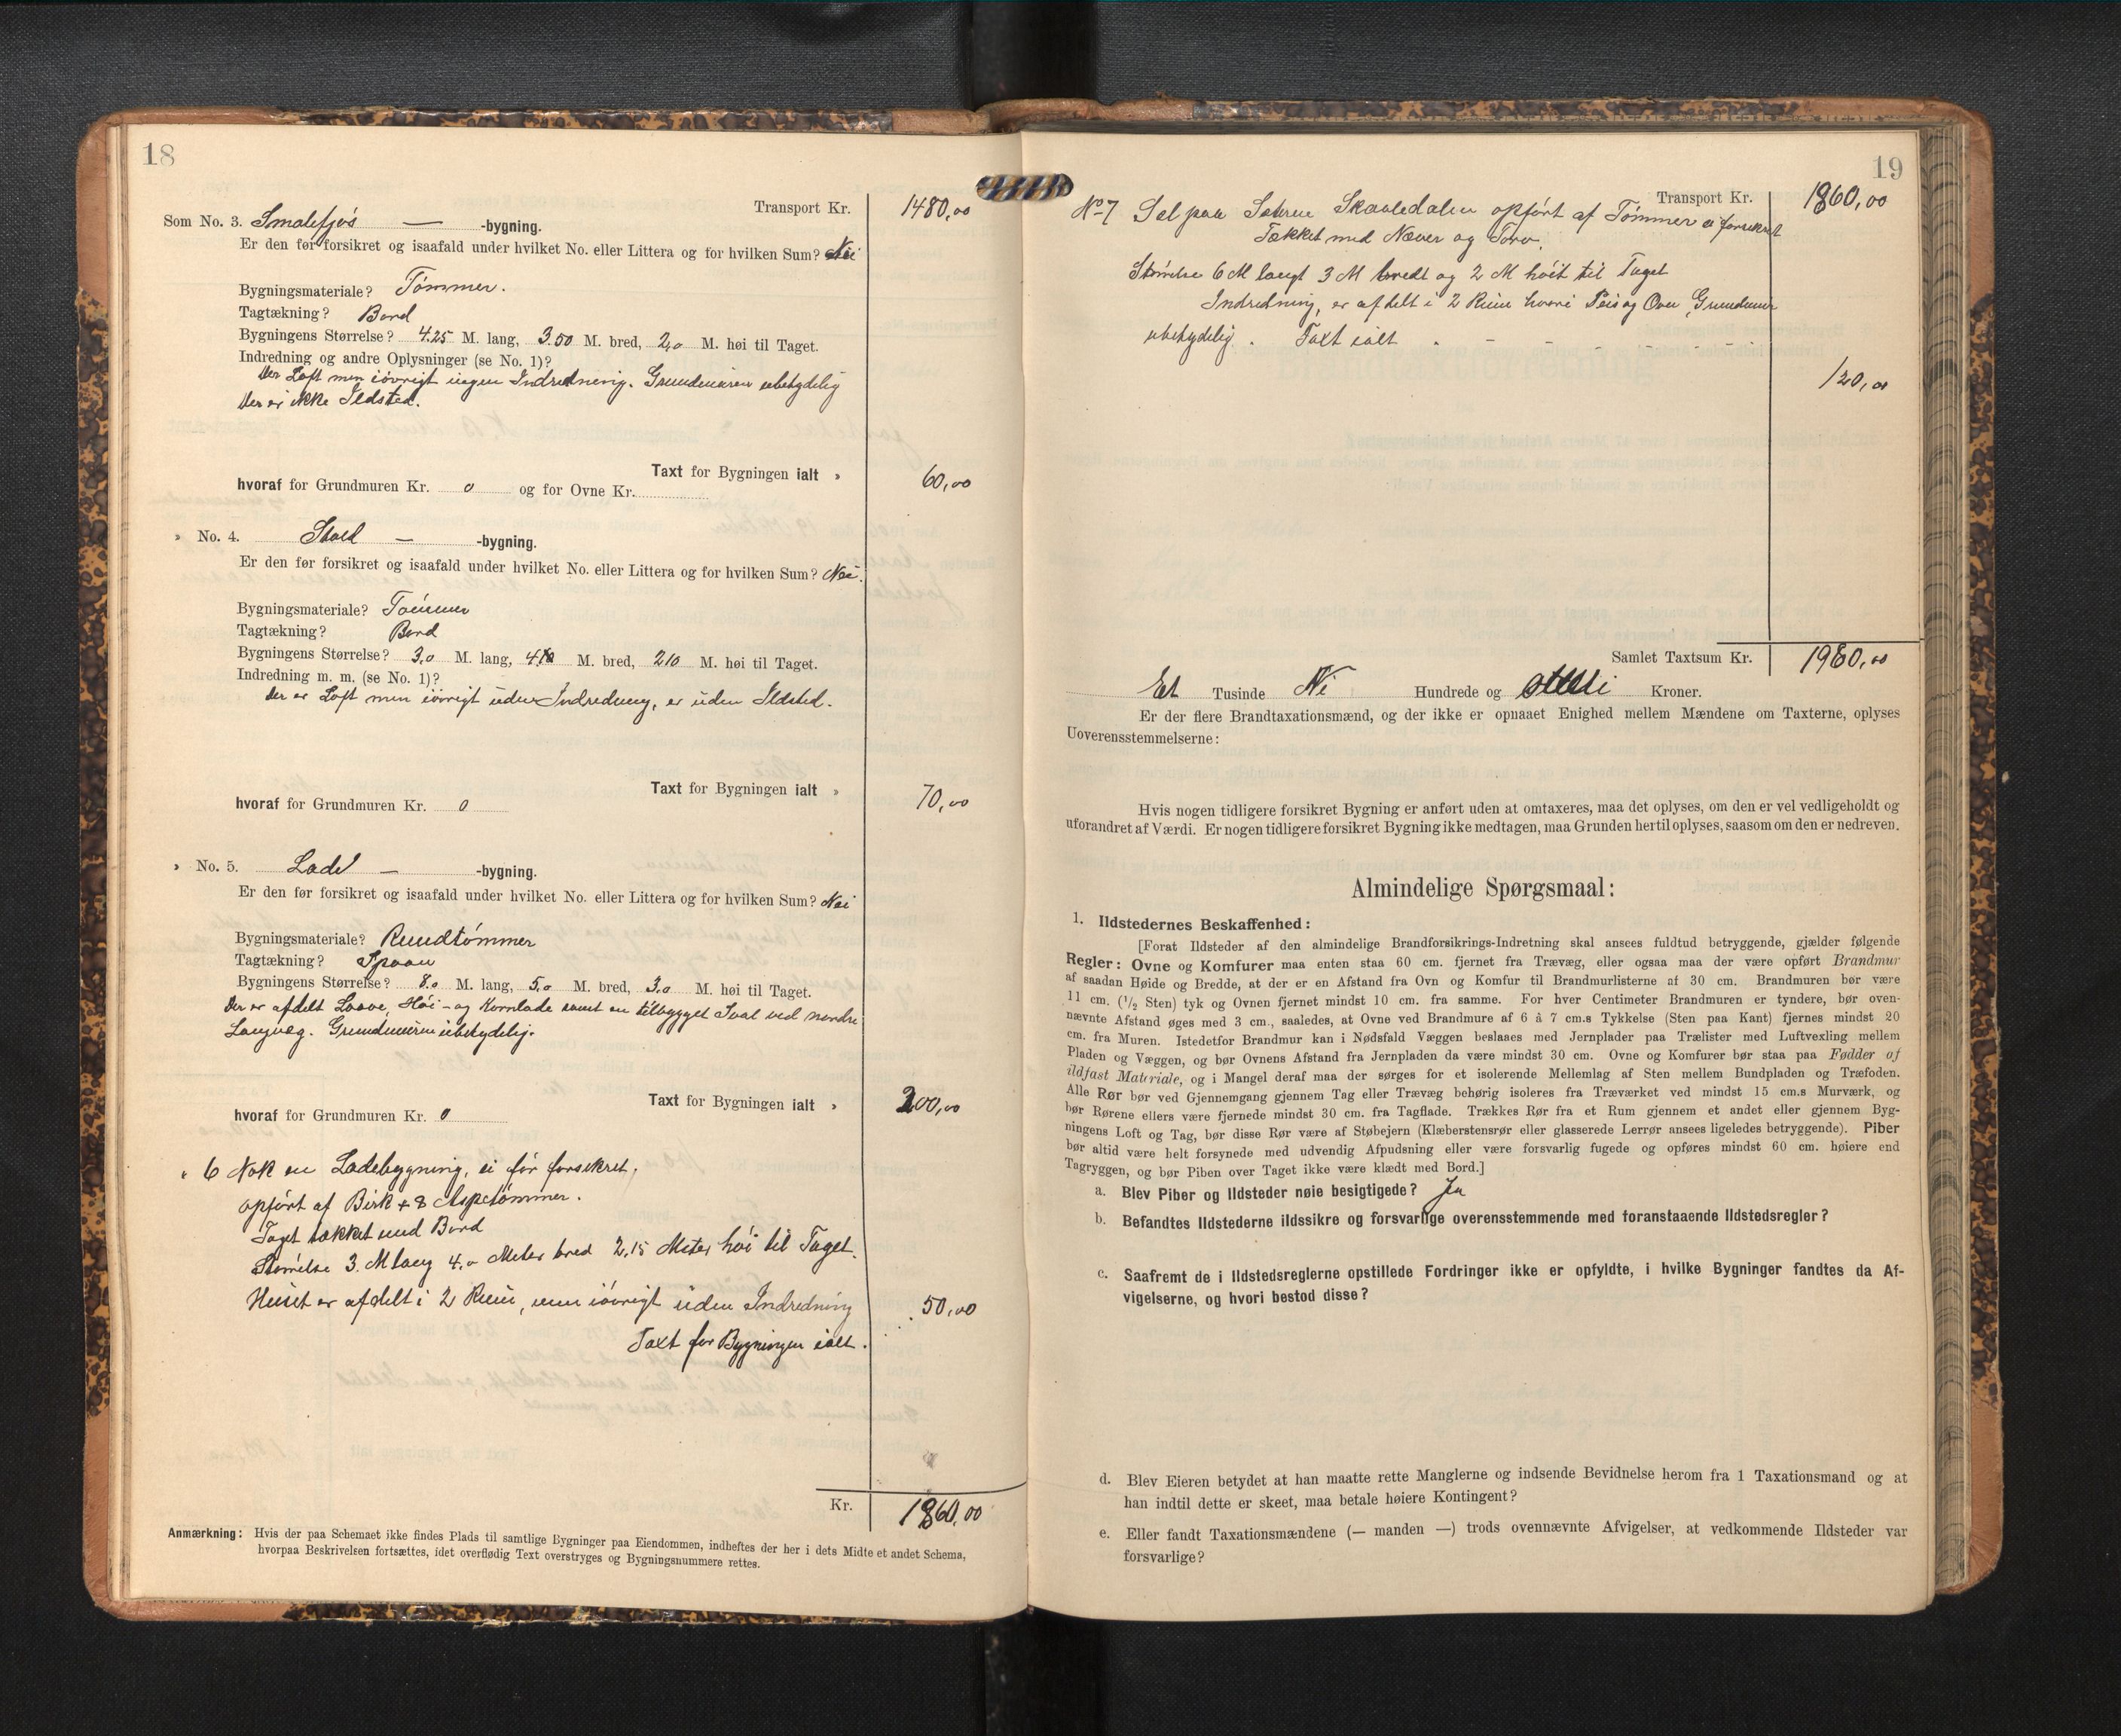 18
Transport Kr. 1480,00
Som No. 3. Smalefjøs — -bygning.
Er den før forsikret og isaafald under hvilket No. eller Littera og for hvilken Sum? Nei
Bygningsmateriale? Tømmer.
Tagtækning? Bord
Bygningens Størrelse? 4.25 M. lang, 3.50 M. bred, 2,0 M. høi til Taget.
Indredning og andre Oplysninger (se No. 1)?
Der Loft men iøvrigt ingen Indredning. Grundmuren ubetydelig
Der er ikke Ildsted.
Taxt for Bygningen ialt » 60,00
hvoraf for Grundmuren Kr. 0 og for Ovne Kr.
» No. 4. Stald — -bygning.
Er den før forsikret og isaafald under hvilket No. eller Littera og for hvilken Sum? Nei.
Bygningsmateriale? Tømmer
Tagtækning? Bord
Bygningens Størrelse? 3,0 M. lang, M. bred, 210 M. høi til Taget.
Indredning m. m. (se No. 1)?
Der er Loft men iøvrigt uden Indredning, er uden Ildsted.
Taxt for Bygningen ialt » 70,00
hvoraf for Grundmuren Kr. 0
» No. 5. Lade — -bygning.
Er den før forsikret og isaafald under hvilket No. eller Littera og for hvilken Sum? Nei
Bygningsmateriale? Rundtømmer
Tagtækning? Spaan
Bygningens Størrelse? 8.0 M. lang, 5,0 M. bred, 3,0 M. høi til Taget.
Der er afdelt Laave, Høi- og Kornlade samt en tilbygget Sval ved nordre
Langvæg. Grundmuren ubetydelig.
Taxt for Bygningen ialt » 200,00
hvoraf for Grundmuren Kr. 0
" 6 Nok en Ladebygning, ei før forsikret,
opført af Birk + Aspetømmer.
Taget tækket med Bord
Størrelse 3. M lang 4,0 Meter bred 2,15 Meter høi til Taget.
Huset er afdelt i 2 Rum, men iøvrigt uden Indredning 50,00
Taxt for Bygningen ialt.
Kr. 1860,00
Anmærkning: Hvis der paa Schemaet ikke findes Plads til samtlige Bygninger paa Eiendommen, indheftes der her i dets Midte et andet Schema,
hvorpaa Beskrivelsen fortsættes, idet overflødig Text overstryges og Bygningsnummere rettes.
19
Transport Kr. 1860,00
No 7 Sel paa Sæteren Skaaledalen opført af Tømmer ei forsikret
Tækket med Næver og Torv.
Størrelse 6 M langt 3 M bredt og 2 M høit til Taget
Indredning, er afdelt i 2 Rum hvori Peis og Ovn, Grundmur
ubetydelig. Taxt ialt . - - - - - -
120,00
Samlet Taxtsum Kr. 1980,00
Et Tusinde Ni Hundrede og otteti Kroner.
Er der flere Brandtaxationsmænd, og der ikke er opnaaet Enighed mellem Mændene om Taxterne, oplyses
Uoverensstemmelserne:
Hvis nogen tidligere forsikret Bygning er anført uden at omtaxeres, maa det oplyses, om den er vel vedligeholdt og
uforandret af Værdi. Er nogen tidligere forsikret Bygning ikke medtagen, maa Grunden hertil oplyses, saasom om den er nedreven.
Almindelige Spørgsmaal:
1. Ildstedernes Beskaffenhed:
[Forat Ildsteder af den almindelige Brandforsikrings-Indretning skal ansees fuldtud betryggende, gjælder følgende
Regler: Ovne og Komfurer maa enten staa 60 cm. fjernet fra Trævæg, eller ogsaa maa der være opført Brandmur
af saadan Høide og Bredde, at der er en Afstand fra Ovn og Komfur til Brandmurlisterne af 30 cm. Brandmuren bør være
11 cm. (1/2 Sten) tyk og Ovnen fjernet mindst 10 cm. fra samme. For hver Centimeter Brandmuren er tyndere, bør oven-
nævnte Afstand øges med 3 cm., saaledes, at Ovne ved Brandmure af 6 à 7 cm.s Tykkelse (Sten paa Kant) fjernes mindst 20
cm. fra Muren. Istedetfor Brandmur kan i Nødsfald Væggen beslaaes med Jernplader paa Trælister med Luftvexling mellem
Pladen og Væggen, og bør Ovnens Afstand fra Jernpladen da være mindst 30 cm. Ovne og Komfurer bør staa paa Fødder af
ildfast Materiale, og i Mangel deraf maa der sørges for et isolerende Mellemlag af Sten mellem Bundpladen og Træfoden.
Alle Rør bør ved Gjennemgang gjennem Tag eller Trævæg behørig isoleres fra Træværket ved mindst 15 cm.s Murværk, og
bør Rørene ellers være fjernede mindst 30 cm. fra Tagflade. Trækkes Rør fra et Rum gjennem et andet eller gjennem Byg-
ningens Loft og Tag, bør disse Rør være af Støbejern (Klæberstensrør eller glasserede Lerrør ansees ligeledes betryggende). Piber
bør altid være helt forsynede med udvendig Afpudsning eller være forsvarlig fugede og opføres mindst 60 cm. høiere end
Tagryggen, og bør Piben over Taget ikke være klædt med Bord.]
a. Blev Piber og Ildsteder nøie besigtigede? Ja
b. Befandtes Ildstederne ildssikre og forsvarlige overensstemmende med foranstaaende Ildstedsregler?
c. Saafremt de i Ildstedsreglerne opstillede Fordringer ikke er opfyldte, i hvilke Bygninger fandtes da Af-
vigelserne, og hvori bestod disse?
d. Blev Eieren betydet at han maatte rette Manglerne og indsende Bevidnelse herom fra 1 Taxationsmand og at
han indtil dette er skeet, maa betale høiere Kontingent?
e. Eller fandt Taxationsmændene (— manden —) trods ovennævnte Afvigelser, at vedkommende Ildsteder var
forsvarlige?